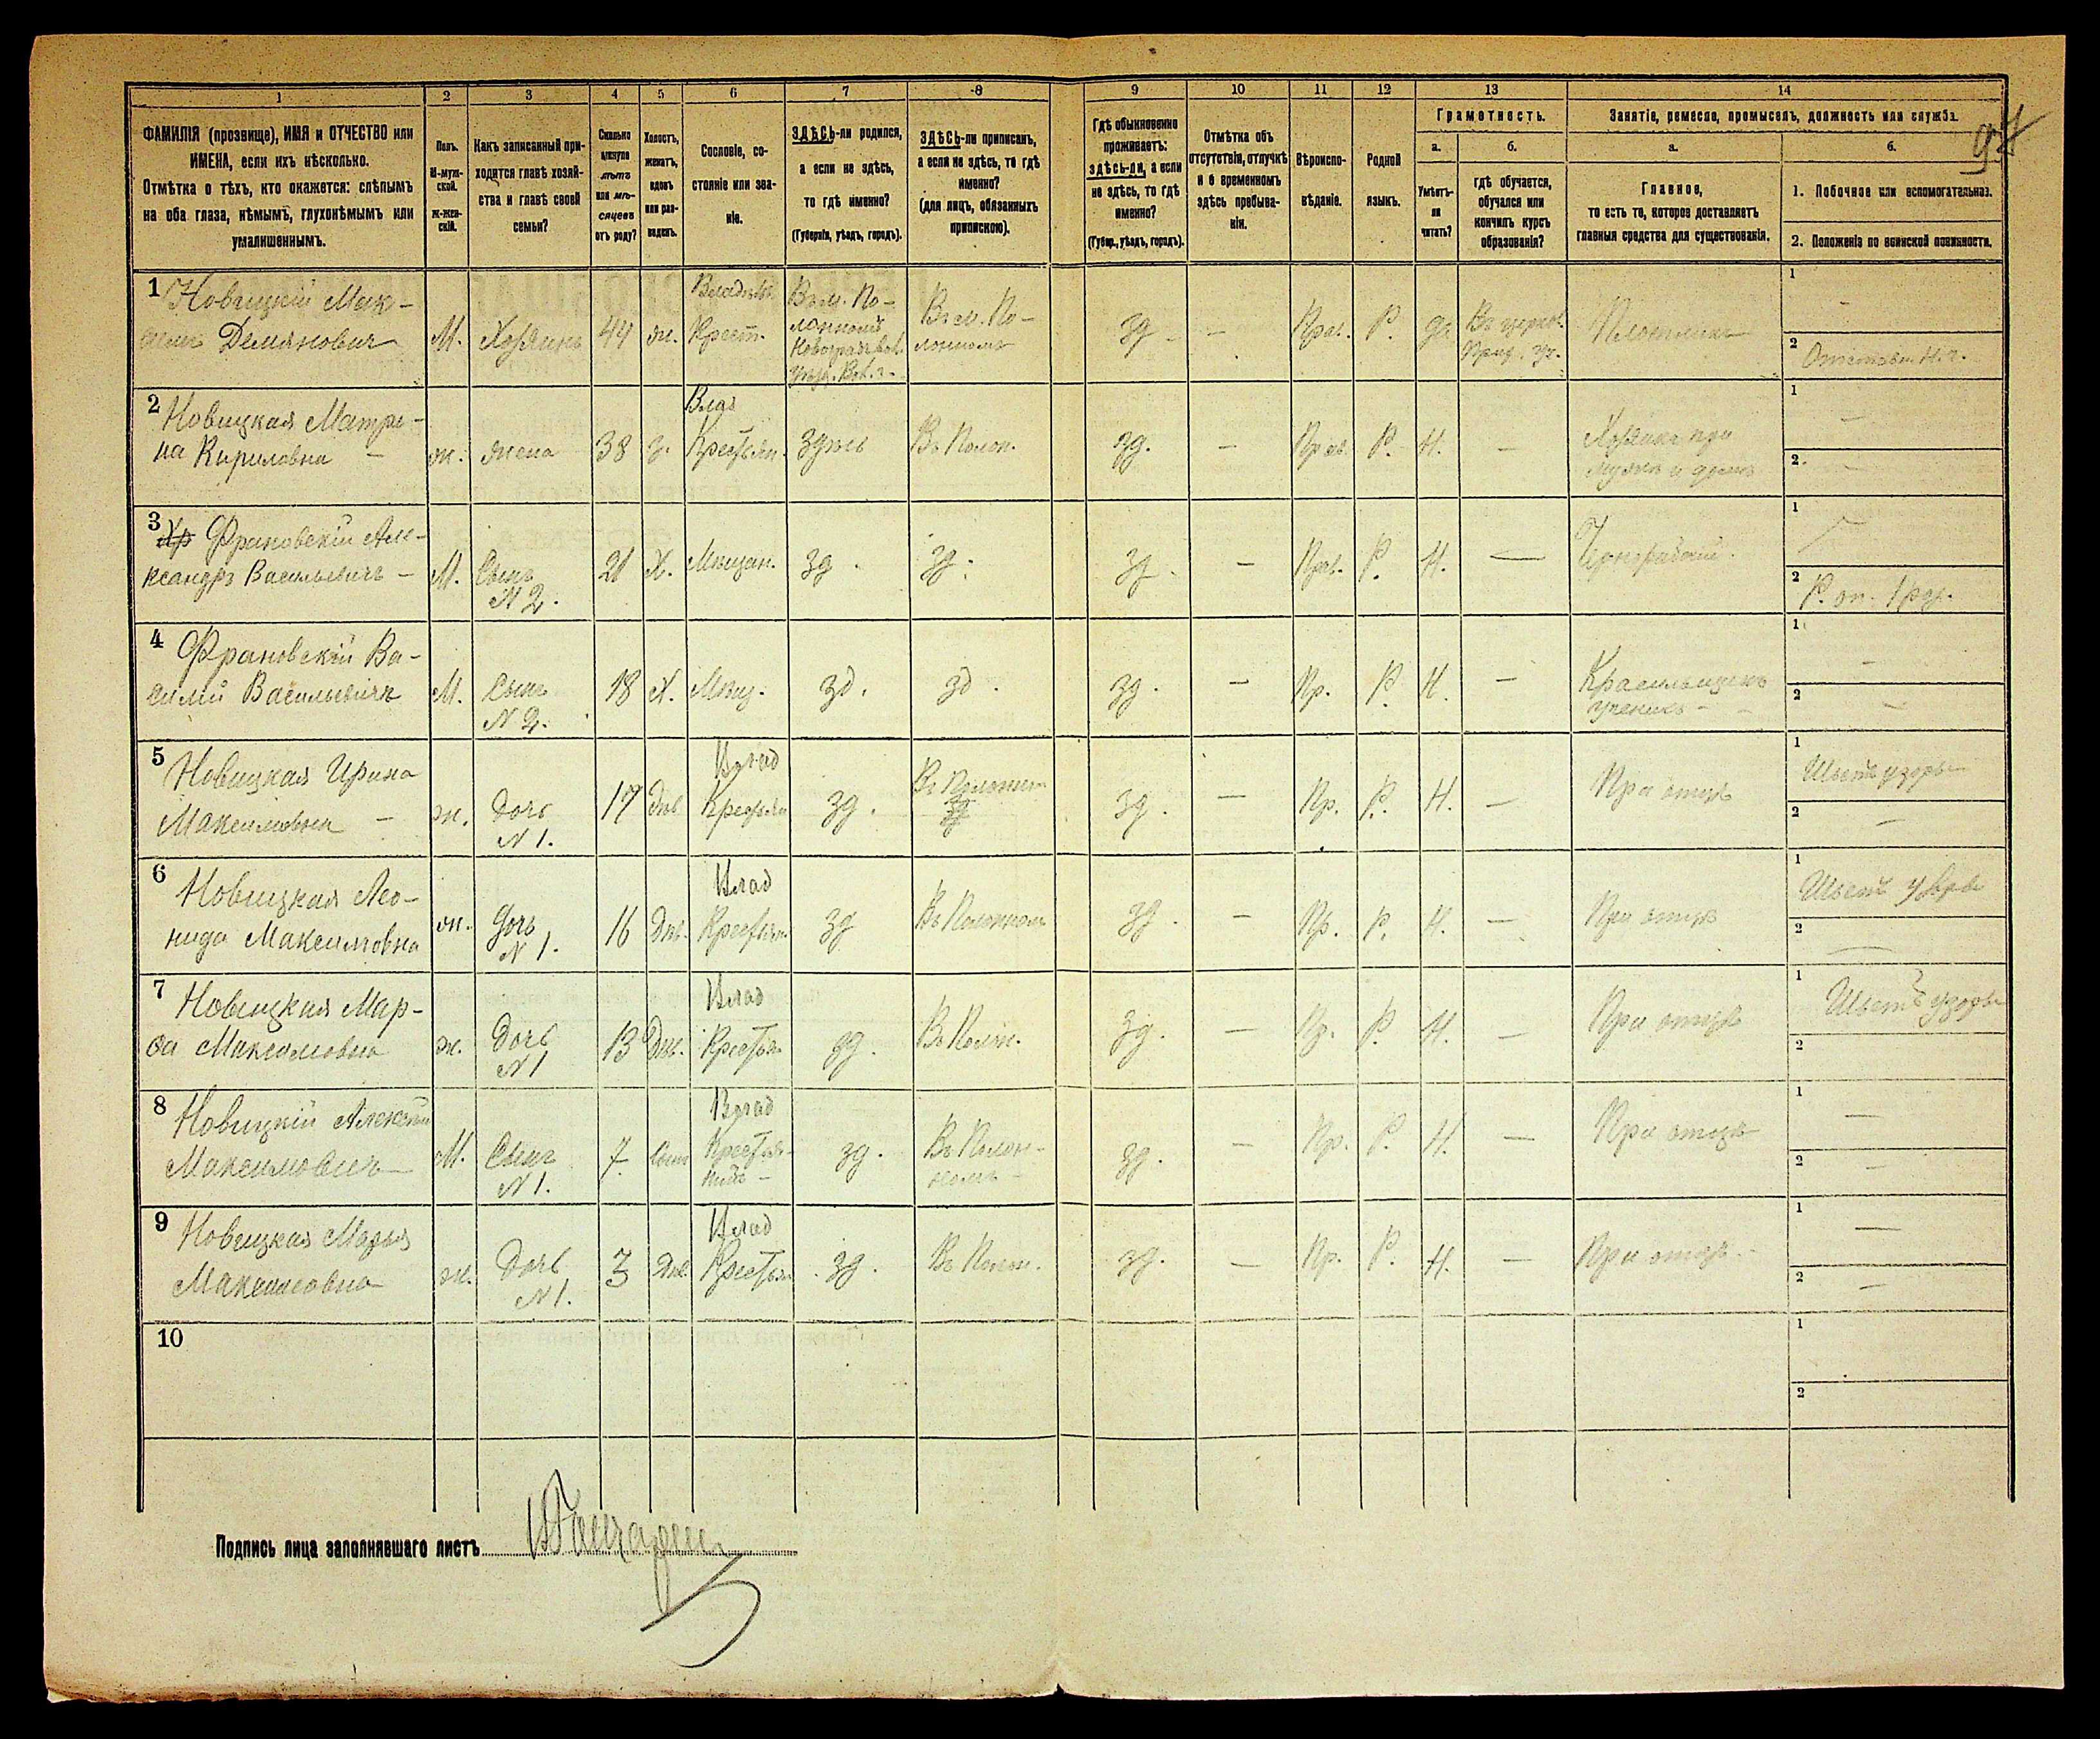 94
1 2 3 4 5 6 7 8 9 10 11 12 13 14
ФАМИЛІЯ (прозвище), ИМЯ и ОТЧЕСТВО или
ИМЕНА, если ихъ нѣсколько.
Отмѣтка о тѣхъ, кто окажется: слѣпымъ
на оба глаза, нѣмымъ, глухонѣмымъ или
умалишеннымъ.
Полъ.
М-муж-
ской.
ж-жен-
скій.
Какъ записанный при-
ходится главѣ хозяй-
ства и главѣ своей
семьи?
Сколько
минуло
лѣтъ
или мѣ-
сяцевъ
отъ роду?
Холостъ,
женатъ,
вдовъ
или раз-
веденъ.
Сословіе, со-
стояніе или зва-
ніе.
ЗДѢСЬ-ли родился,
а если не здѣсь,
то гдѣ именно?
(Губернія, уѣздъ, городъ).
ЗДѢСЬ-ли приписанъ,
а если не здѣсь, то гдѣ
именно?
(для лицъ, обязанныхъ
припискою).
Гдѣ обыкновенно
проживаетъ:
здѣсь-ли, а если
не здѣсь, то гдѣ
именно?
(Губер., уѣздъ, городъ).
Отмѣтка объ
отсутствіи, отлучкѣ
и о временномъ
здѣсь пребыва-
ніи.
Вѣроиспо-
вѣданіе.
Родной
языкъ.
Грамотность.
а.
Умѣетъ-
ли
читать?
б.
гдѣ обучается,
обучался или
кончилъ курсъ
образованія?
Занятіе, ремесло, промыселъ, должность или служба.
а.
Главное,
то есть то, которое доставляетъ
главныя средства для существованія.
б.
1. Побочное или вспомогательное.
2. Положеніе по воинской повинности.
1 Новицкій Мак-
симъ Демяновичъ
М. Хозяинъ 44 ж.
Владѣл.
Крест.
Въ м. По-
лонномъ
Новоградвол.
уѣзд. Вол. г.
Въ м. По-
лонномъ
зд - - Прав. Р. да
Въ церков.
Прих. уч.
Плотникъ
1 -
2
2 Новицкая Матре-
на Кириловна -
ж. жена 38 з.
Влад
Крестьян. здѣсь Въ Полон.
зд. - Прав. Р. Н. -
Хозяйка при
мужѣ и домѣ
1 -
2. -
3 Хр Франовскій Але-
ксандръ Васильевичъ -
М. Сынъ
N 2.
21 Х. Мѣщан. зд. зд. зд. - Прав. Р. Н. -
Чернорабочій.
1
2 Р. оп. 1 раз.
4 Франовскій Ва-
силій Васильевичъ
М. Сынъ
N 2.
18 Х. Мѣщ. зд. зд. зд. - Пр. Р. Н. -
Красильщикъ
ученикъ -
1 -
2 -
5 Новицкая Ирина
Максимовна -
ж. Дочь
N 1.
17 Двв.
Влад
Крестьян зд.
Въ Полонном
зд
зд. - Пр. Р. Н. -
При отцѣ
1 Шьетъ узоры
2 -
6 Новицкая Лео-
нида Максимовна
ж. Дочь
N 1.
16 Двв.
Влад
Крестьян. зд Въ Полонном
зд. - Пр. Р. Н. -
При отцѣ
1 Шьетъ узоры
2 -
7 Новицкая Мар-
ѳа Максимовна
ж. Дочь
N 1
13 Двв.
Влад
Крестьян. зд. Въ Полон.
зд. - Пр. Р. Н. -
При отцѣ
1 Шьетъ узоры
2
8 Новицкій Алексѣй
Максимовичъ
М. Сынъ
N 1.
7
Влад
Крестья-
нинъ -
зд. Въ Полон-
номъ -
зд. - Пр. Р. Н. -
При отцѣ
1 -
2 -
9 Новицкая Марья
Максимовна
ж. Дочь
N 1.
3 Двв.
Влад
Крестьян. зд. Въ Полон.
зд. - Пр. Р. Н. -
При отцѣ -
1 -
2 -
10
1
2
Подпись лица заполнявшаго листъ